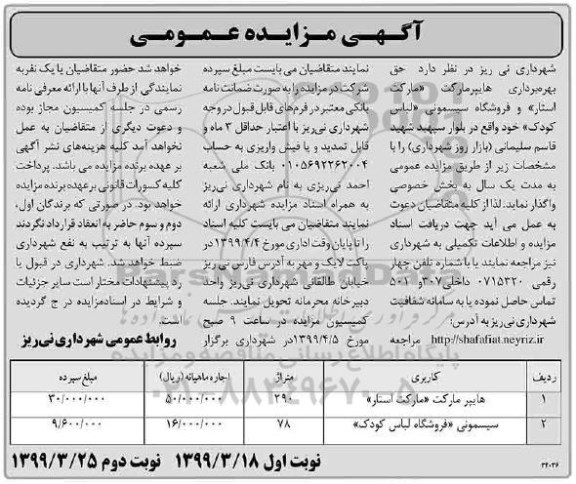 آگهـی مـزایـده عـمـومـی
شهرداری نی ریز در نظر دارد حق
بهره‌برداری هایپرمارکت «مارکت
استار» و فروشگاه سیسمونی «لباس
کودک» خود واقع در بلوار سپهبد شهید
قاسم سلیمانی (بازار روز شهرداری) را با
مشخصات زیر از طریق مزایده عمومی
به مدت یک سال به بخش خصوصی
واگذار نماید. لذا از کلیه متقاضیان دعوت
به عمل می آید جهت دریافت اسناد
مزایده و اطلاعات تکمیلی به شهرداری
نیز مراجعه نمایند یا با شماره تلفن چهار
رقمی ۰۷۱۵۳۲۰ داخلی ۴۰۷و ۵۰۱
تماس حاصل نموده یا به سامانه شفافیت
شهرداری نی ریز به آدرس:
http://shafafiat.neyriz.ir مراجعه
نمایند متقاضیان می بایست مبلغ سپرده
شرکت در مزایده را به صورت ضمانت نامه
بانکی معتبر در فرم‌های قابل قبول در وجه
شهرداری نی‌ریز با اعتبار حداقل ۳ ماه و
قابل تمدید و یا فیش واریزی به حساب
۰۱۰۵۶۹۲۲۶۲۰۰۴ بانک ملی شعبه
احمد نی‌ریزی به نام شهرداری نی‌ریز
به همراه اسناد مزایده شهرداری ارائه
نمایند متقاضیان می بایست کلیه اسناد
را تا پایان وقت اداری مورخ ۱۳۹۹/۴/۴در
پاکت لاک و مهر به آدرس فارس نی ریز
خیابان طالقانی شهرداری نی‌ریز واحد
دبیرخانه محرمانه تحویل نمایند. جلسه
کمیسیون مزایده در ساعت ۹ صبح
مورخ ۱۳۹۹/۴/۵در شهرداری برگزار
خواهد شد. حضور متقاضیان یا یک نفر به
نمایندگی از طرف آنها با ارائه معرفی نامه
رسمی در جلسه کمیسیون مجاز بوده
و دعوت دیگری از متقاضیان به عمل
نخواهد آمد کلیه هزینه‌های نشر آگهی
بر عهده برنده مزایده می باشد. پرداخت
کلیه کسورات قانونی بر عهده برنده مزایده
خواهد بود. در صورتی که برندگان اول،
دوم و سوم حاضر به انعقاد قرارداد نگردند
سپرده آنها به ترتیب به نفع شهرداری
ضبط خواهد شد. شهرداری در قبول یا
رد پیشنهادات مختار است سایر جزئیات
و شرایط در اسنادمزایده در ج گردیده
است.
روابط عمومی شهرداری نی‌ریز
ردیف کاربری متراژ اجاره ماهیانه (ریال) مبلغ سپرده
۱ هایپر مارکت «مارکت استار» ۲۹۰ ۵۰/۰۰۰/۰۰۰ ۳۰/۰۰۰/۰۰۰
۲ سیسمونی «فروشگاه لباس کودک» ۷۸ ۱۶/۰۰۰/۰۰۰ ۹/۶۰۰/۰۰۰
نوبت اول ۱۳۹۹/۳/۱۸ نوبت دوم ۱۳۹۹/۳/۲۵
۳۴۰۳۶
ParsNamadData
پایگاه اطلاع رسانی مناقصه و مزایده
۰۲۱-۸۸۳۴۹۶۷۰-۵